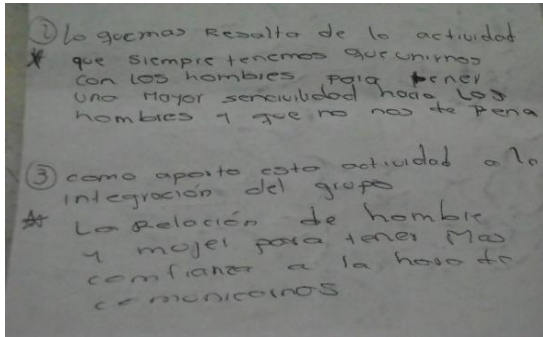 ② Lo que mas Resalto de la actividad
* que siempre tenemos que unirnos
con los hombres para tener
una Mayor sencivilidad hacia Los
hombres y que no nos de pena
③ como aporto esta actividad a la
integración del grupo
* La Relación de hombre
y mujer para tener Mas
comfianza a la hora de
comunicarnos